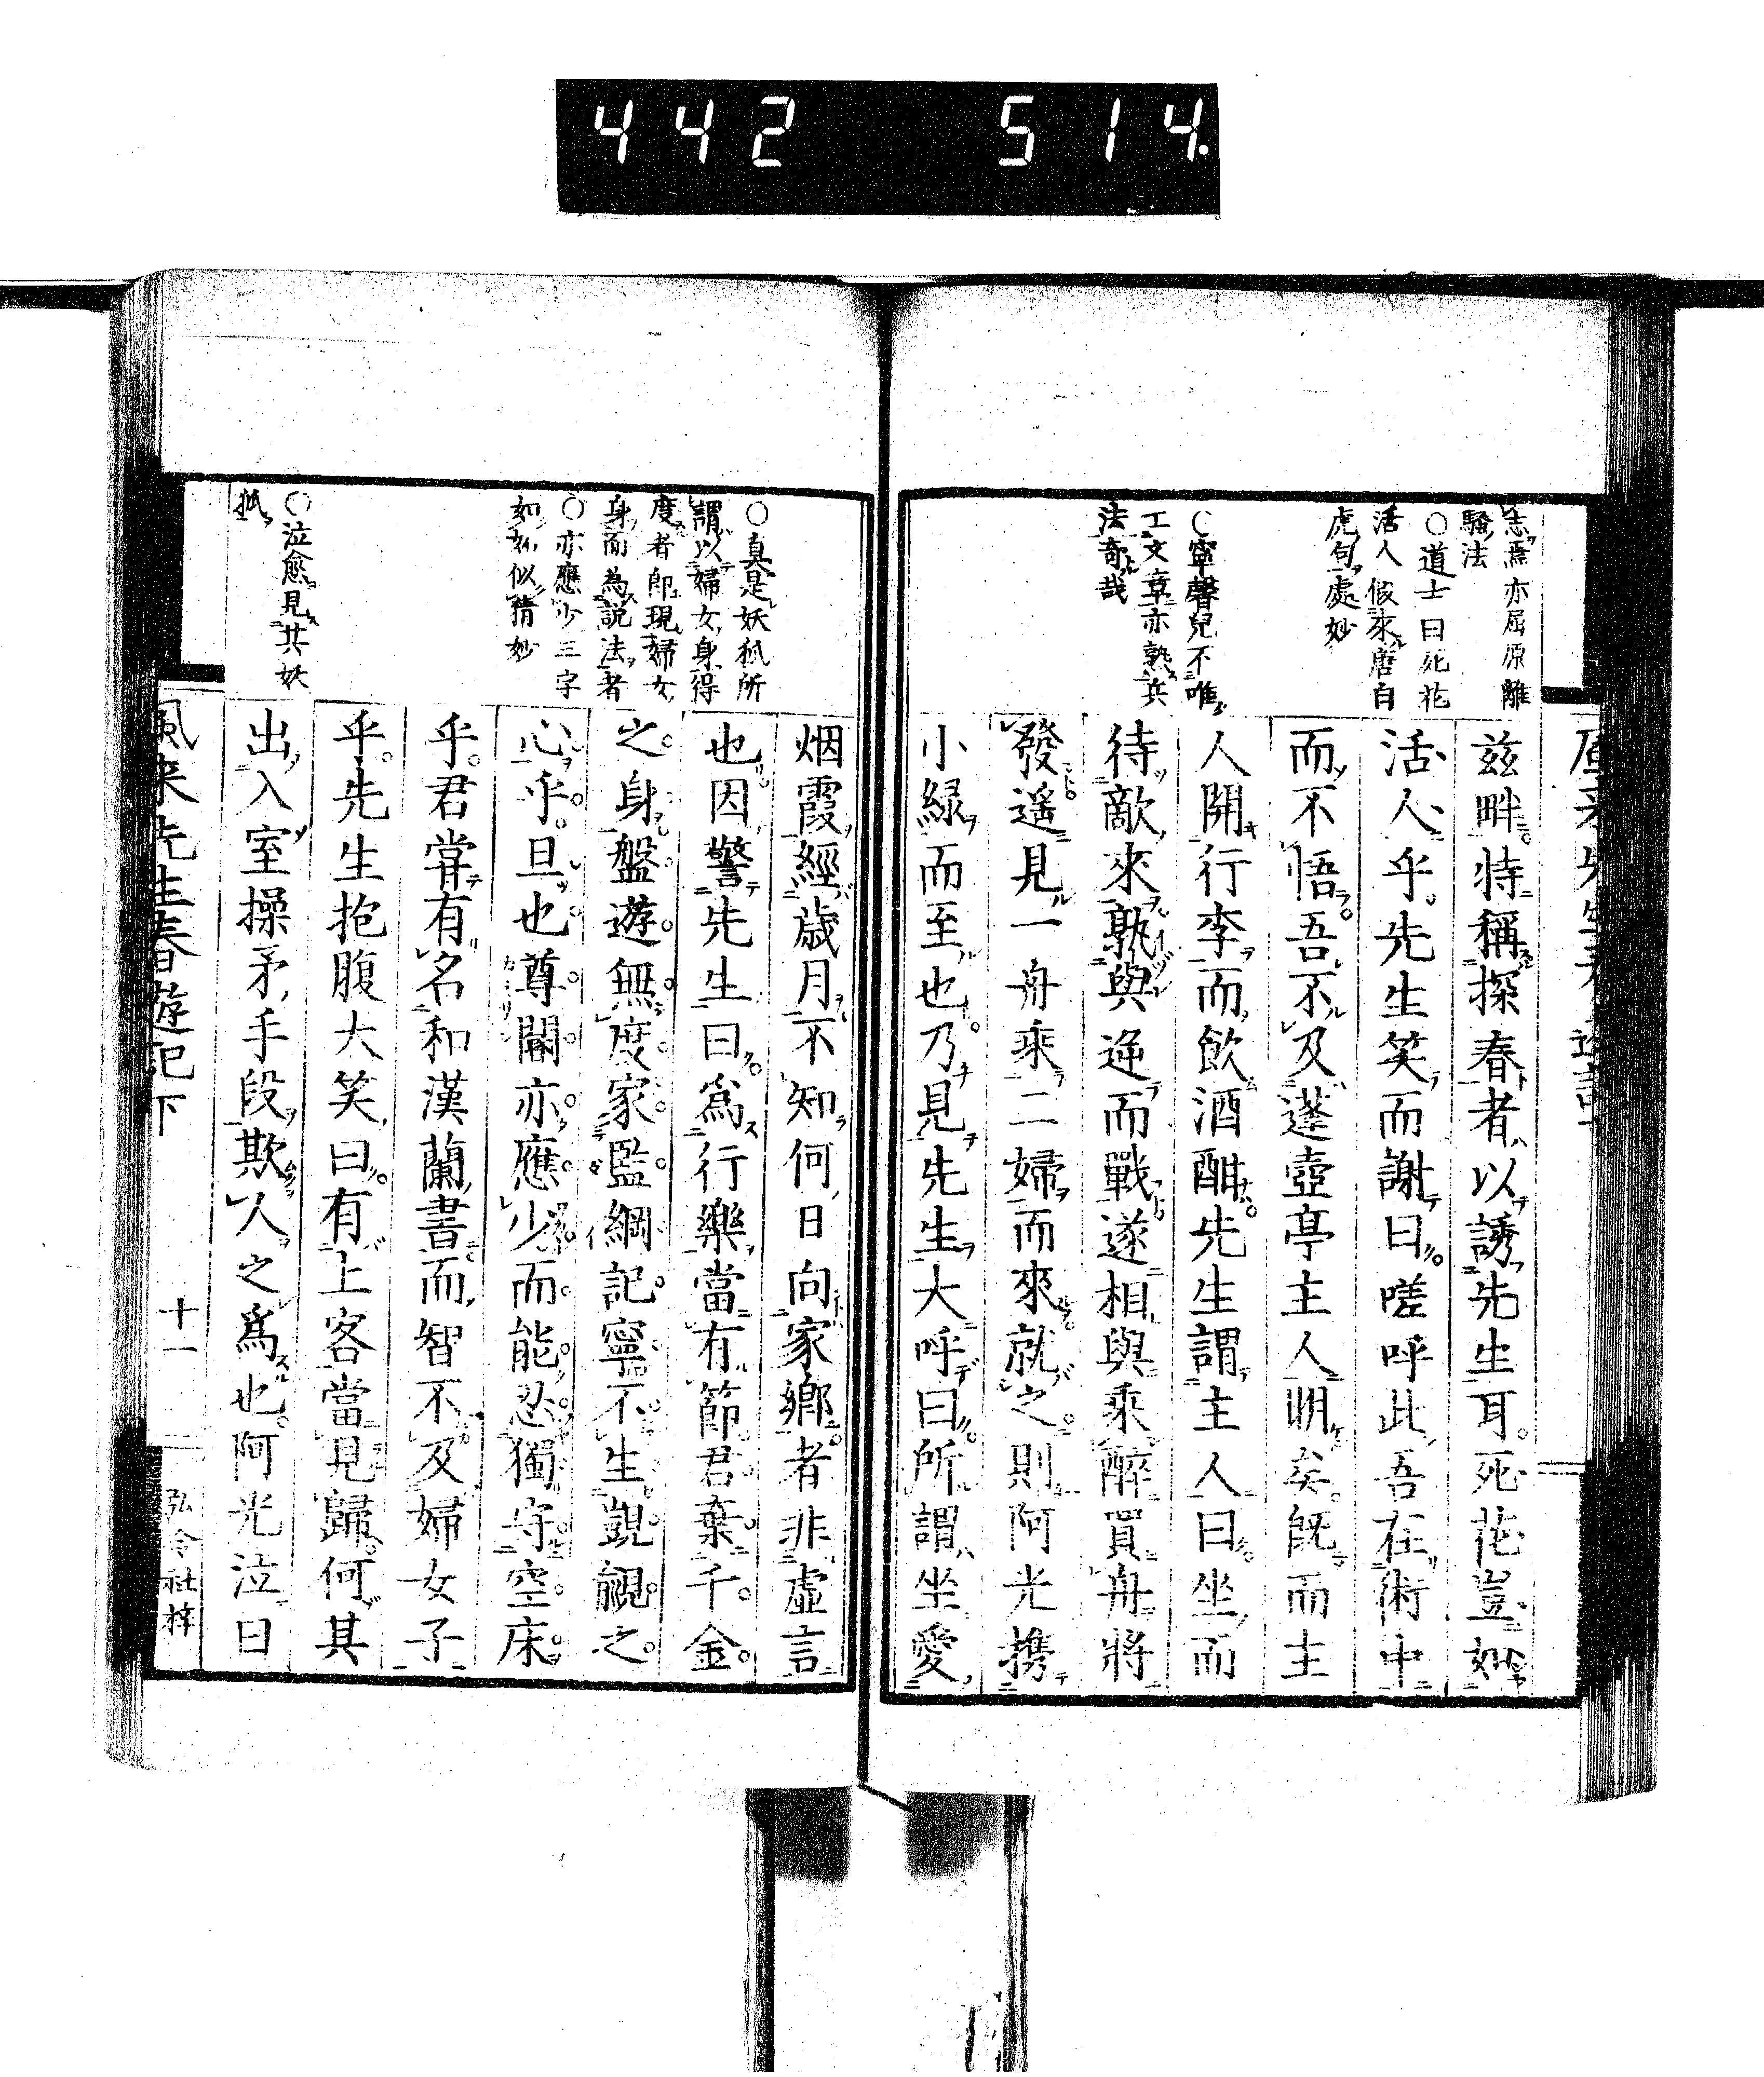 442 514.
志焉亦屈原離
騷法
○道士曰死花
活人假來唐白
虎句處妙
○寧馨兒不唯
工文章亦熟兵
法奇哉
茲畔特稱探春者以誘先生耳死花豈妙
活人乎先生笑而謝曰嗟呼此吾在術中
而不悟吾不及蓬壺亭主人明矣既而主
人開行李而飲酒酣先生謂主人曰坐而
待敵來孰與逆而戰遂相與乘醉買舟將
發遥見一舟乘二婦而來就之則阿光携
小緑而至也乃見先生大呼曰所謂坐愛
○真是妖狐所
謂以婦女身得
度者即現婦女
身而為説法者
○亦應少三字
如刻似猜妙
○泣愈見其妖
狐
烟霞經歳月不知何日向家郷者非虛言
也因警先生曰爲行樂當有節君棄千金
之身盤遊無度家監綱記寧不生覬覦之
心乎且也尊閫亦應少而能忍獨守空床
乎君甞有名和漢蘭書而智不及婦女子
乎先生抱腹大笑曰有上客當見歸何其
出入室操矛手段欺人之爲也阿光泣曰
風来先生春遊記下
十一
弘令社梓